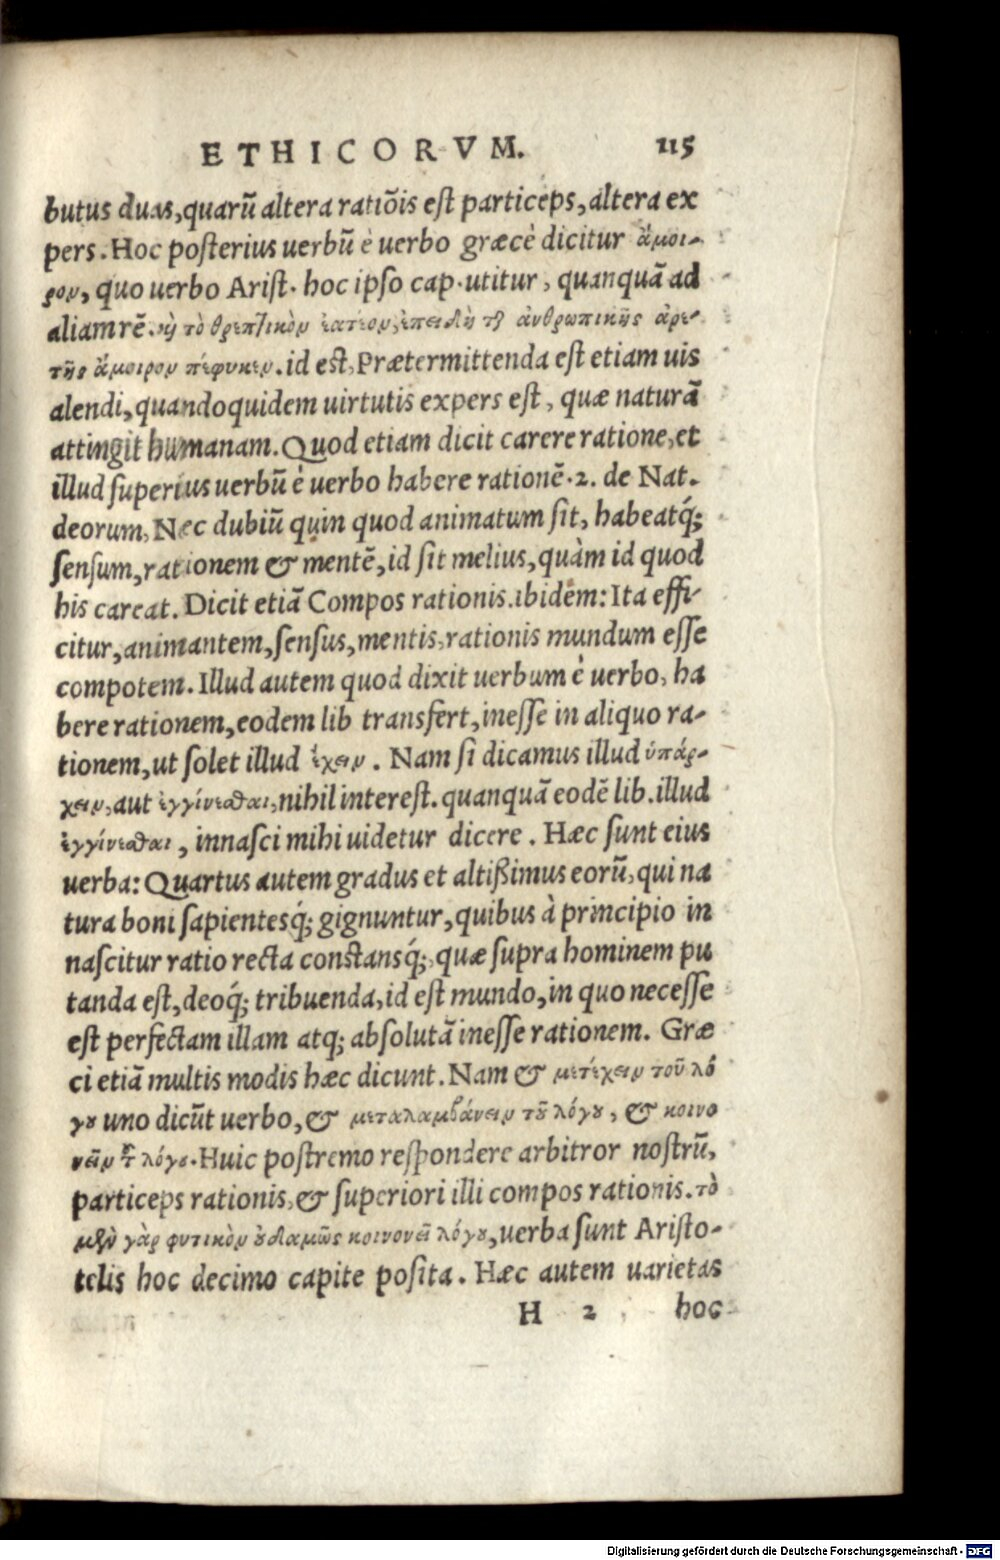 ETHICORVM. 115
butus duas, quarū altera ratiōis est particeps, altera ex
pers. Hoc posterius uerbū è uerbo græcè dicitur ἄμοι-
ρον, quo uerbo Arist. hoc ipso cap. utitur, quanquā ad
aliam rē. κὴ τὸ θρεπτικὸν ἐατέον, ἐπειδὴ τῆ ἀνθρωπικῆς ἀρε-
τῆς ἄμοιρον πέφυκεν. id est, Prætermittenda est etiam uis
alendi, quandoquidem uirtutis expers est, quæ naturā
attingit humanam. Quod etiam dicit carere ratione, et
illud superius uerbū è uerbo habere rationē. 2. de Nat.
deorum, Nec dubiū quin quod animatum sit, habeatq́;
sensum, rationem & mentē, id sit melius, quàm id quod
his careat. Dicit etiā Compos rationis. ibidem: Ita effi-
citur, animantem, sensus, mentis, rationis mundum esse
compotem. Illud autem quod dixit uerbum è uerbo, ha
bere rationem, eodem lib transfert, inesse in aliquo ra-
tionem, ut solet illud ἔχειν. Nam si dicamus illud ὑπάρ-
χειν, aut ἐγγίνεσθαι, nihil interest. quanquā eodē lib. illud
ἐγγίνεσθαι, innasci mihi uidetur dicere. Hæc sunt eius
uerba: Quartus autem gradus et altißimus eorū, qui na
tura boni sapientesq́; gignuntur, quibus à principio in
nascitur ratio recta constansq́;, quæ supra hominem pu
tanda est, deoq́; tribuenda, id est mundo, in quo necesse
est perfectam illam atq; absolutā inesse rationem. Græ
ci etiā multis modis hæc dicunt. Nam & μετέχειν τοῦ λό
γου uno dicūt uerbo, & μεταλαμβάνειν τοῦ λόγου, & κοινο
νεῖν τ λόγο. Huic postremo respondere arbitror nostrū,
particeps rationis, & superiori illi compos rationis. τὸ
μὲν γὰρ φυτικὸν οὐδαμῶς κοινονεῖ λόγου, uerba sunt Aristo-
telis hoc decimo capite posita. Hæc autem uarietas
H 2 hoc
Digitalisierung gefördert durch die Deutsche Forschungsgemeinschaft - DFG